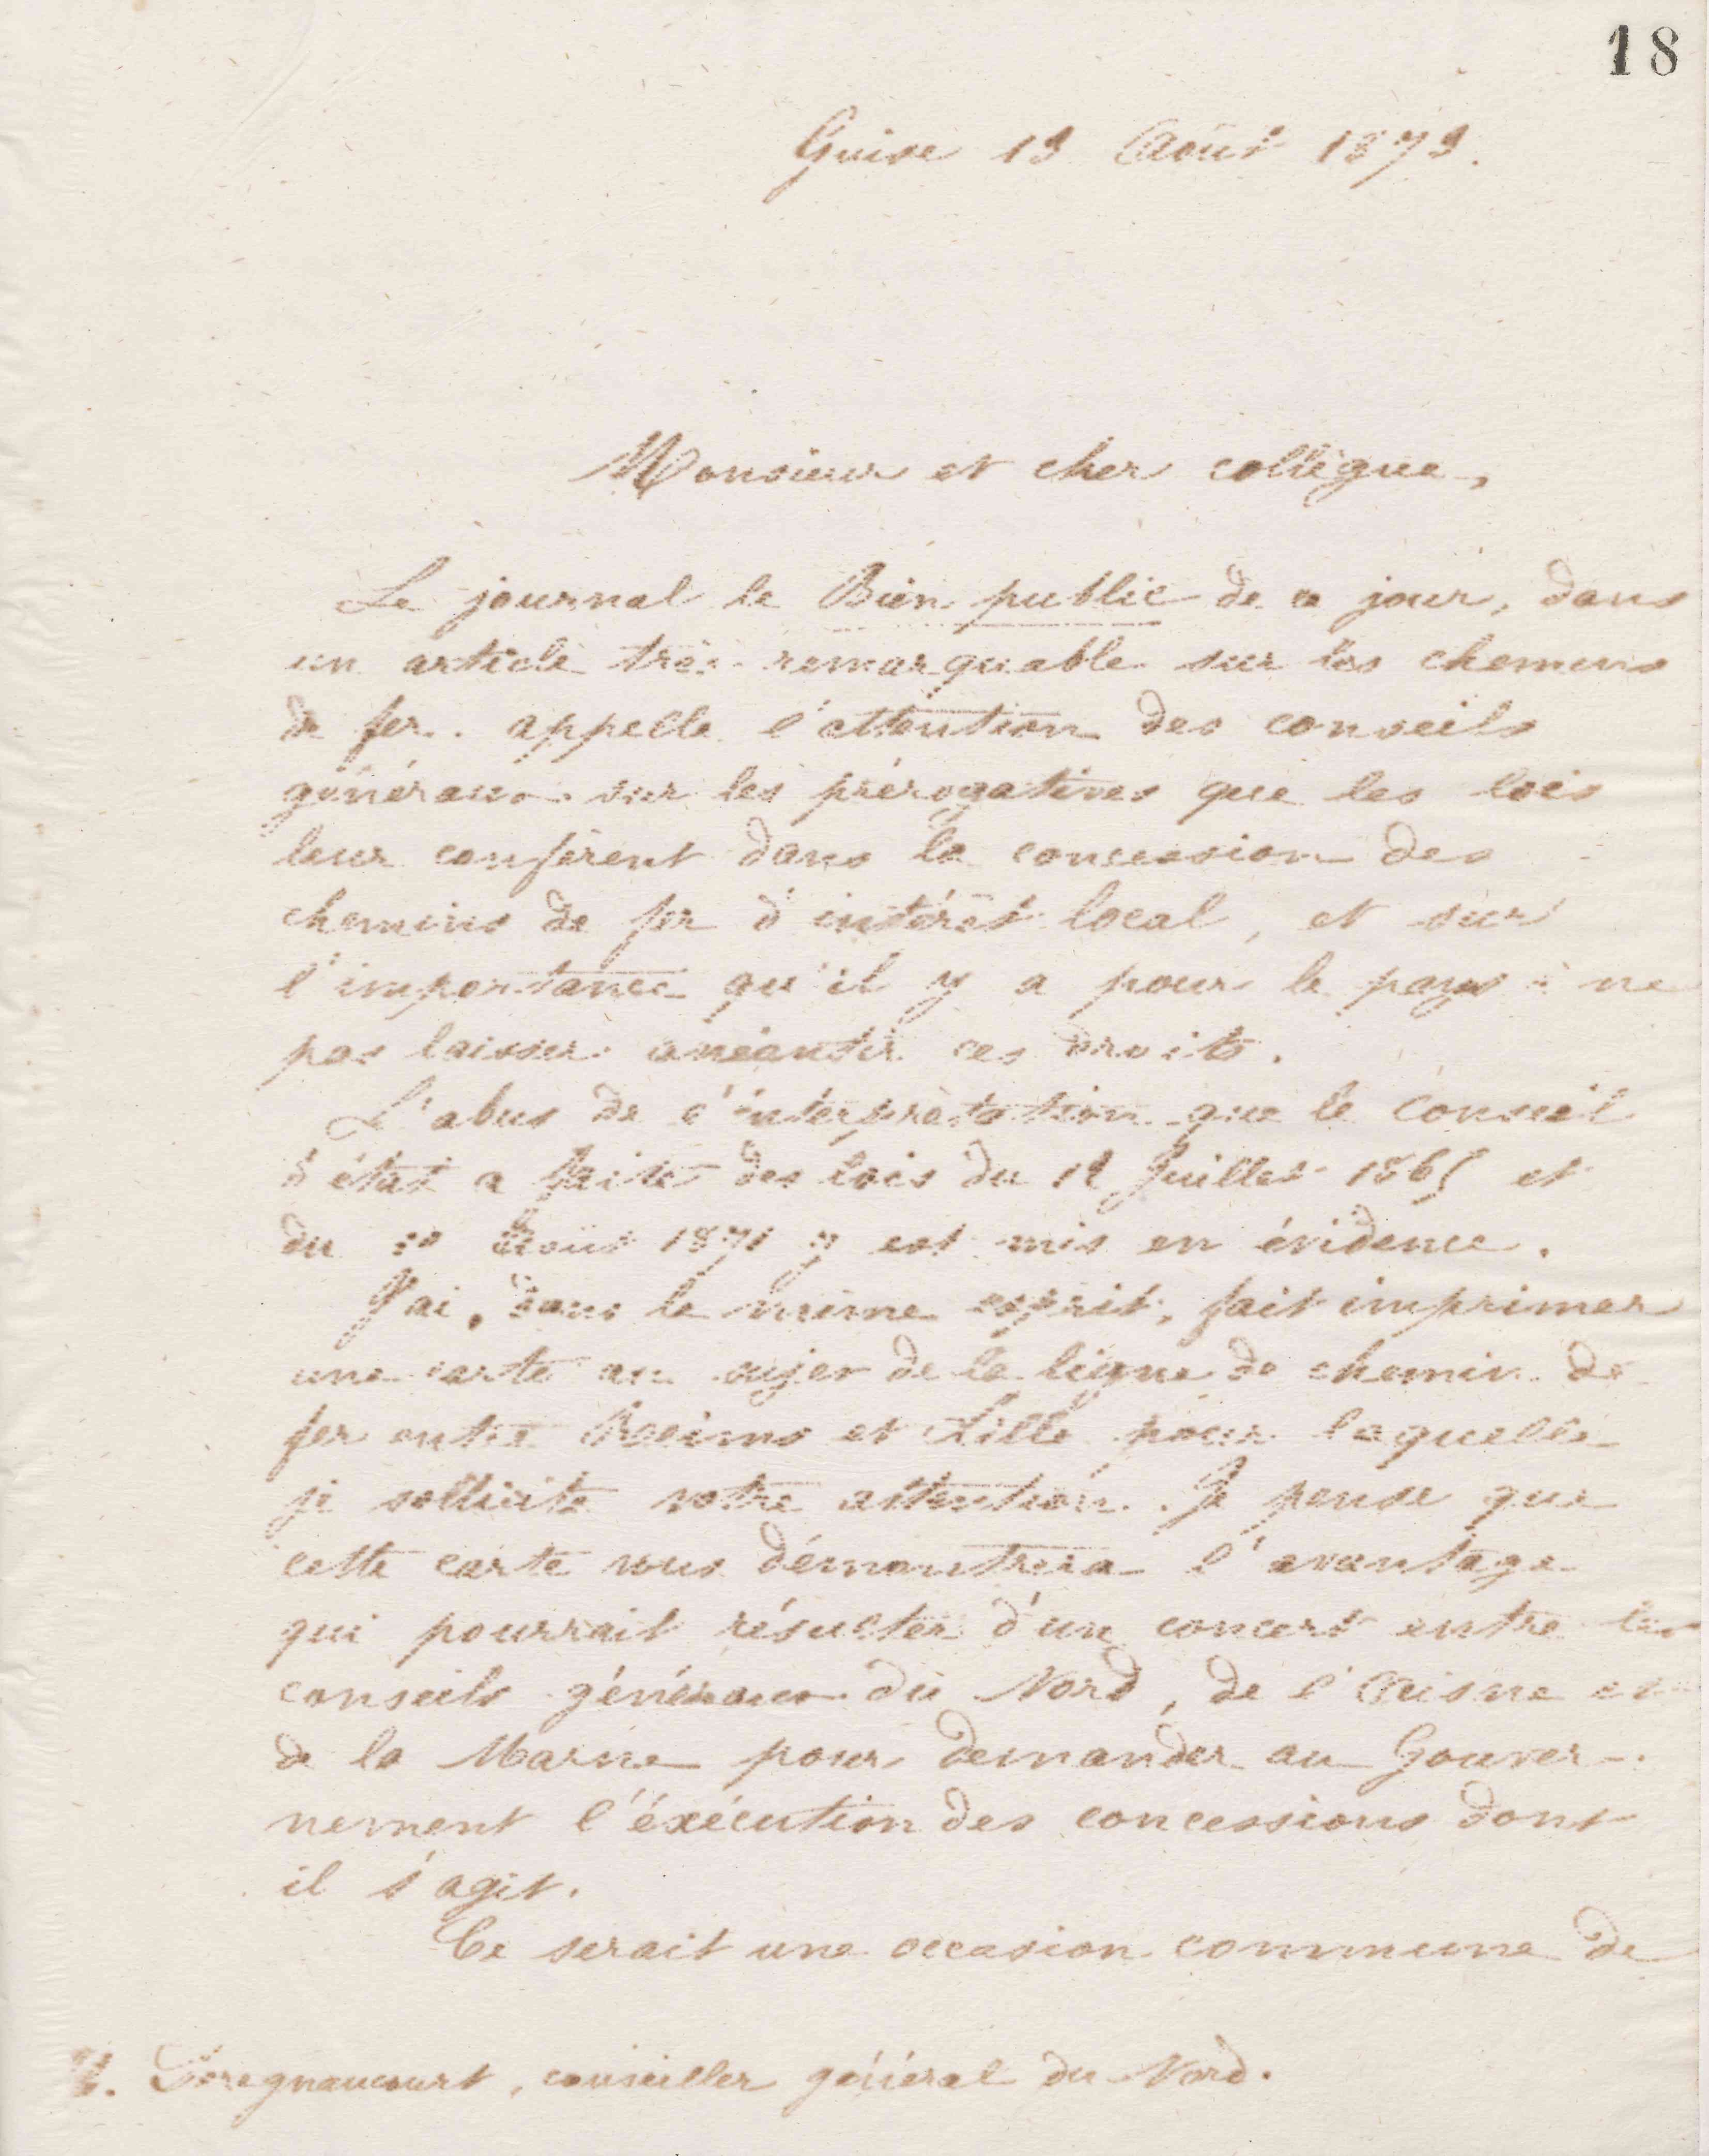 18
Guise 19 Août 1873.
Monsieur et cher collègue,
Le journal le Bien public de ce jour, dans
un article très remarquable sur les chemins
de fer. appelle l'attention des conseils
généraux sur les prérogatives que les lois
leur confèrent dans la concession des
chemins de fer d'intérêt local, et sur
l'importance qu'il y a pour le pays à ne
pas laisser anéantir ces droits.
L'abus de l'interprétation que le Conseil
d'état a faite des lois du 12 Juillet 1865 et
du 10 Août 1871 y est mis en évidence.
J'ai, dans le même esprit, fait imprimer
une carte au sujet de la ligne de chemin de
fer entre Reims et Lille pour laquelle
je sollicite votre attention. Je pense que
cette carte vous démontrera l'avantage
qui pourrait résulter d'un concert entre les
conseils généraux du Nord, de l'Aisne et
de la Marne pour demander au Gouver-
nement l'éxécution des concessions dont
il s'agit.
Ce serait une occasion commune de
conseiller général du Nord.